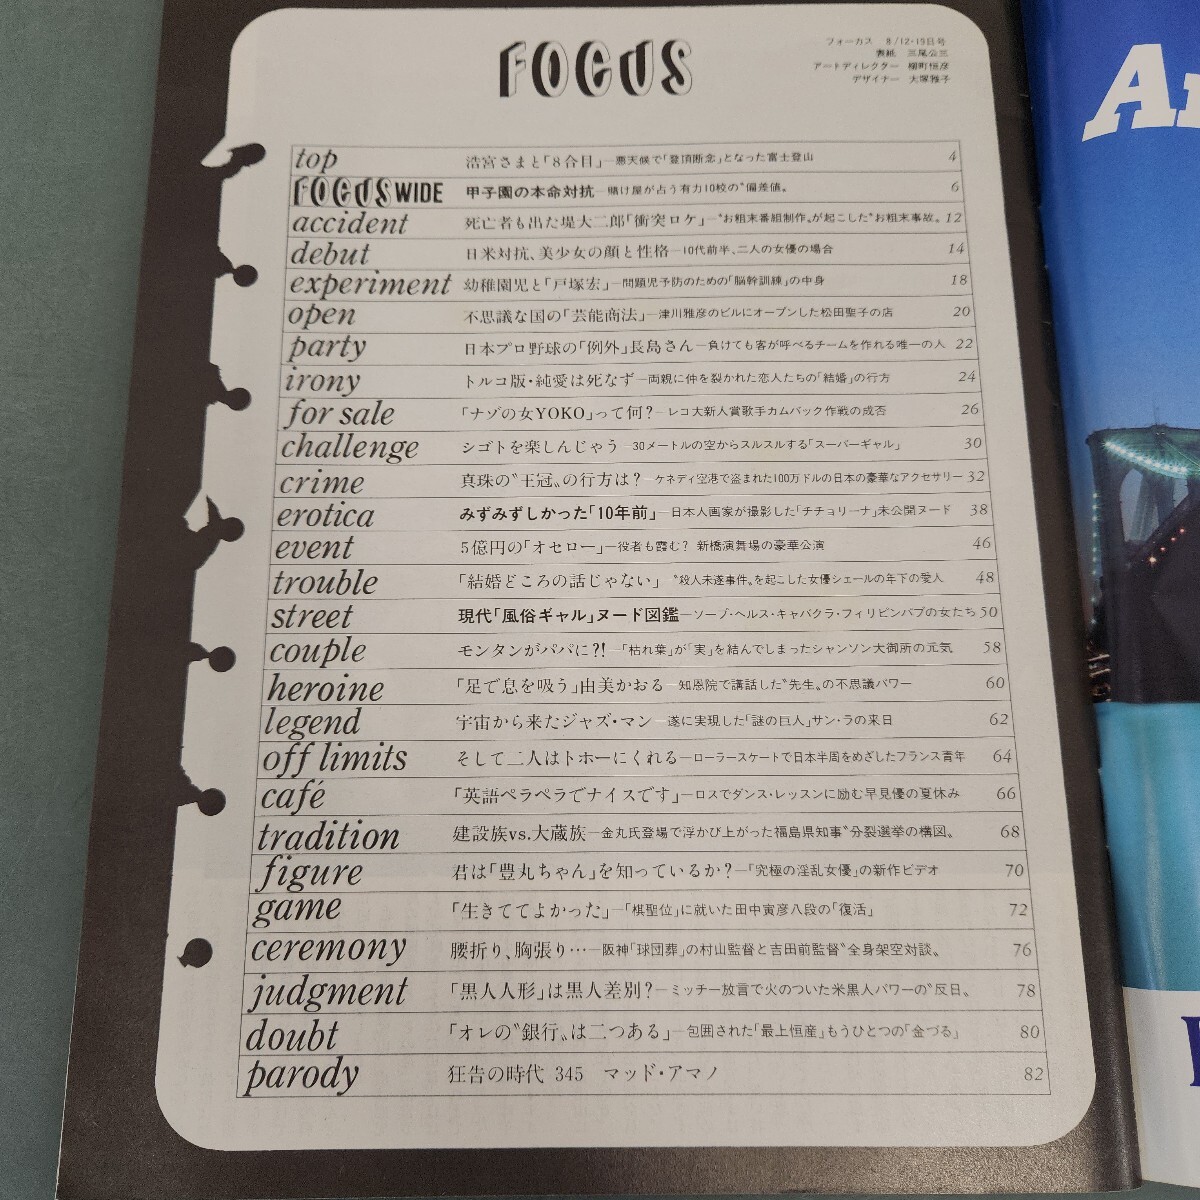 FOCUS
フォーカス 8/12・19日号
表紙 三尾公三
アートディレクター 柳町恒彦
デザイナー 大塚雅子
top 浩宮さまと「8合目」—悪天候で「登頂断念」となった富士登山 4
FOCUS WIDE 甲子園の本命対抗—賭け屋が占う有力10校の〝偏差値〟 6
accident 死亡者も出た堤大二郎「衝突ロケ」—〝お粗末番組制作〟が起こした〝お粗末事故〟 12
debut 日米対抗、美少女の顔と性格—10代前半、二人の女優の場合 14
experiment 幼稚園児と「戸塚宏」—問題児予防のための「脳幹訓練」の中身 18
open 不思議な国の「芸能商法」—津川雅彦のビルにオープンした松田聖子の店 20
party 日本プロ野球の「例外」長島さん—負けても客が呼べるチームを作れる唯一の人 22
irony トルコ版・純愛は死なず—両親に仲を裂かれた恋人たちの「結婚」の行方 24
for sale 「ナゾの女YOKO」って何?—レコ大新人賞歌手カムバック作戦の成否 26
challenge シゴトを楽しんじゃう—30メートルの空からスルスルする「スーパーギャル」 30
crime 真珠の〝王冠〟の行方は?—ケネディ空港で盗まれた100万ドルの日本の豪華なアクセサリー 32
erotica みずみずしかった「10年前」—日本人画家が撮影した「チチョリーナ」未公開ヌード 38
event 5億円の「オセロー」—役者も霞む? 新橋演舞場の豪華公演 46
trouble 「結婚どころの話じゃない」 〝殺人未遂事件〟を起こした女優シェールの年下の愛人 48
street 現代「風俗ギャル」ヌード図鑑—ソープ・ヘルス・キャバクラ・フィリピンパブの女たち 50
couple モンタンがパパに?!—「枯れ葉」が「実」を結んでしまったシャンソン大御所の元気 58
heroine 「足で息を吸う」由美かおる—知恩院で講話した〝先生〟の不思議パワー 60
legend 宇宙から来たジャズ・マン—遂に実現した「謎の巨人」サン・ラの来日 62
off limits そして二人はトホーにくれる—ローラースケートで日本半周をめざしたフランス青年 64
café 「英語ペラペラでナイスです」—ロスでダンス・レッスンに励む早見優の夏休み 66
tradition 建設族vs.大蔵族—金丸氏登場で浮かび上がった福島県知事〝分裂選挙の構図〟 68
figure 君は「豊丸ちゃん」を知っているか?—「究極の淫乱女優」の新作ビデオ 70
game 「生きててよかった」—「棋聖位」に就いた田中寅彦八段の「復活」 72
ceremony 腰折り、胸張り…—阪神「球団葬」の村山監督と吉田前監督〝全身架空対談〟 76
judgment 「黒人人形」は黒人差別?—ミッチー放言で火のついた米黒人パワーの〝反日〟 78
doubt 「オレの〝銀行〟は二つある」—包囲された「最上恒産」もうひとつの「金づる」 80
parody 狂告の時代 345 マッド・アマノ 82